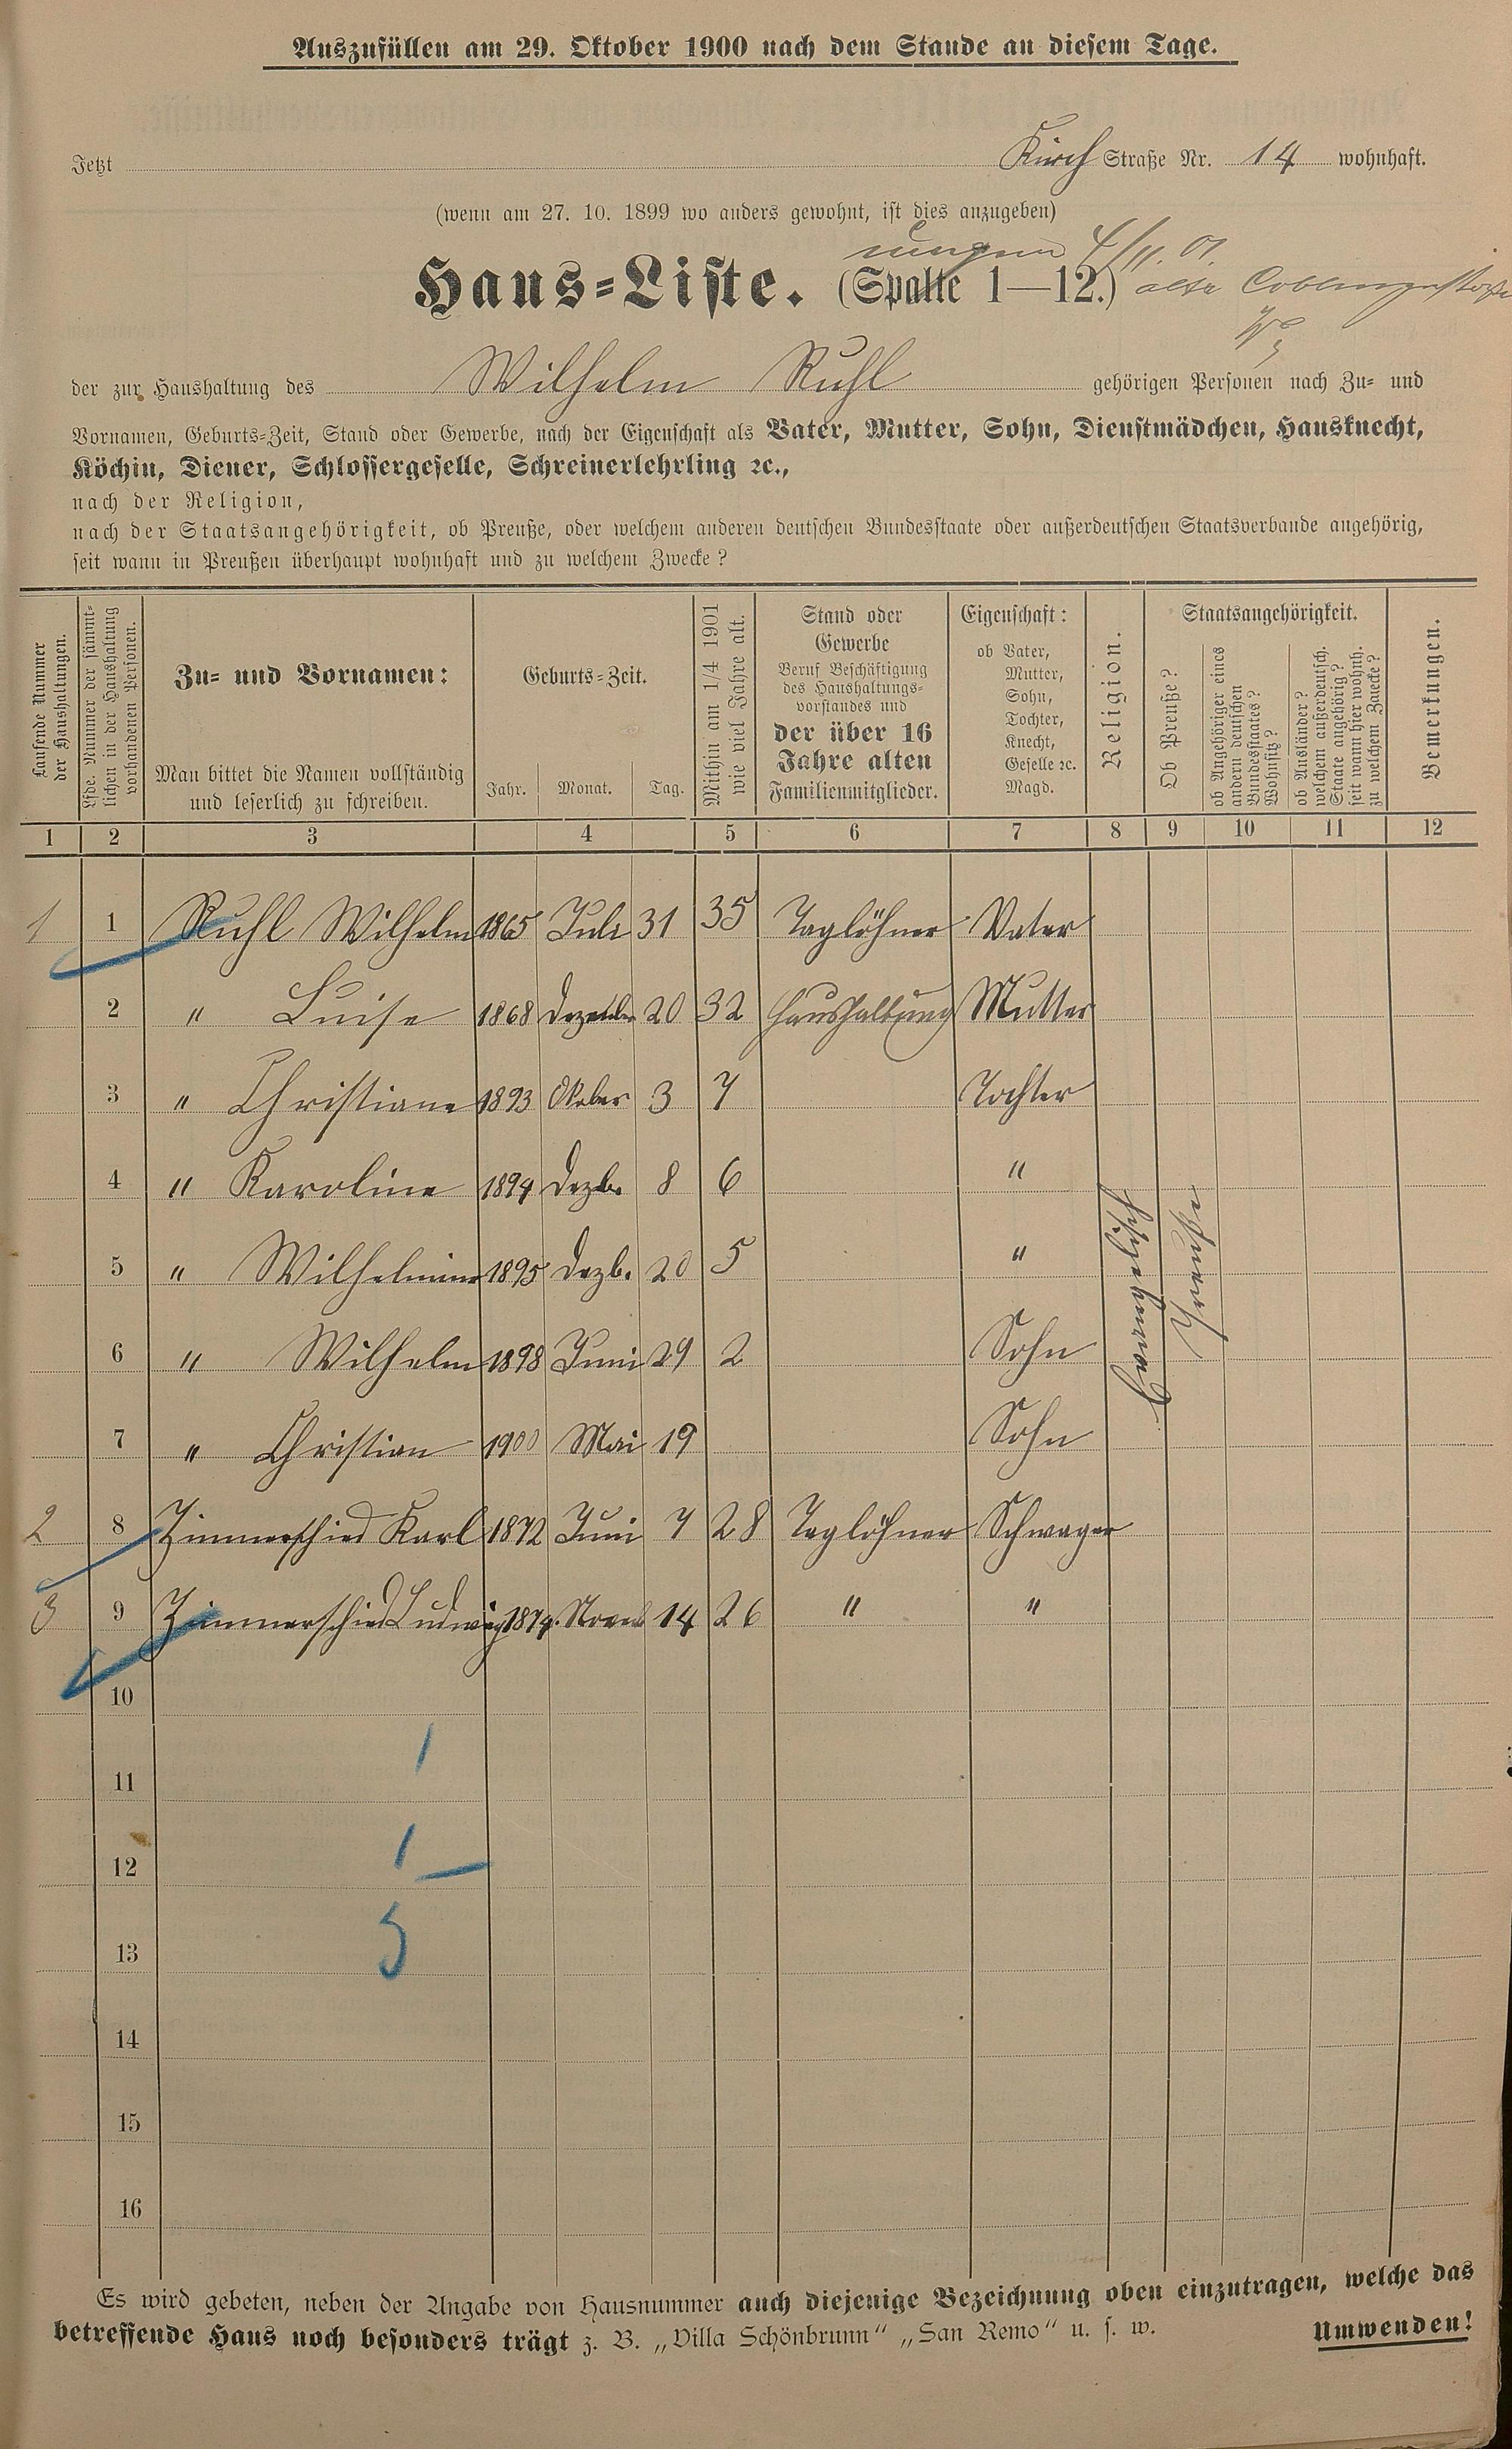 Auszufüllen am 29. Oktober 1900 nach dem Stande an diesem Tage.
Jetzt Kirch Straße Nr. 14 wohnhaft.
(wenn am 27. 10. 1899 wo anders gewohnt, ist dies anzugeben)
4/11. 01.
Haus=Liste. (Spalte 1—12.)
der zur Haushaltung des Wilhelm Ruhl gehörigen Personen nach Zu- und
Vornamen, Geburts=Zeit, Stand oder Gewerbe, nach der Eigenschaft als Vater, Mutter, Sohn, Dienstmädchen, Hausknecht,
Köchin, Diener, Schlossergeselle, Schreinerlehrling ꝛc.,
nach der Religion,
nach der Staatsangehörigkeit, ob Preuße, oder welchem anderen deutschen Bundesstaate oder außerdeutschen Staatsverbande angehörig,
seit wann in Preußen überhaupt wohnhaft und zu welchem Zwecke?
Laufende Nummer
der Haushaltungen.
Lfde. Nummer der sämmt-
lichen in der Haushaltung
vorhandenen Personen.
Zu= und Vornamen:
Man bittet die Namen vollständig
und leserlich zu schreiben.
Geburts=Zeit.
Jahr. Monat. Tag.
Mithin am 1/4 1901
wie viel Jahre alt.
Stand oder
Gewerbe
Beruf Beschäftigung
des Haushaltungs-
vorstandes und
der über 16
Jahre alten
Familienmitglieder.
Eigenschaft:
ob Vater,
Mutter,
Sohn,
Tochter,
Knecht,
Geselle ꝛc.
Magd.
Religion.
Staatsangehörigkeit.
Ob Preuße?
ob Angehöriger eines
andern deutschen
Bundesstaates?
Wohnsitz?
ob Ausländer?
welchem außerdeutsch.
Staate angehörig?
seit wann hier wohnh.
zu welchem Zwecke?
Bemerkungen.
1 2 3 4 5 6 7 8 9 10 11 12
1 1 Ruhl Wilhelm 1865 Juli 31 35 Taglöhner Vater
2 " Luise 1868 Dezember 20 32 Haushaltung Mutter
3 " Christiane 1893 Oktober 3 7 Tochter
4 " Karoline 1894 Dezbr 8 6 "
5 " Wilhelmine 1895 Dezb. 20 5 "
6 " Wilhelm 1898 Juni 29 2 Sohn
7 " Christian 1900 Mai 19 Sohn
evangelisch
Preuße
2 8 Zimmerschied Karl 1872 Juni 7 28 Taglöhner Schwager
3 9 Zimmerschied Ludwig 1874. Novemb 14 26 " "
10
1
11
1
12
3
13
14
15
16
Es wird gebeten, neben der Angabe von Hausnummer auch diejenige Bezeichnung oben einzutragen, welche das
betreffende Haus noch besonders trägt z. B. „Villa Schönbrunn" „San Remo" u. s. w.
Umwenden!